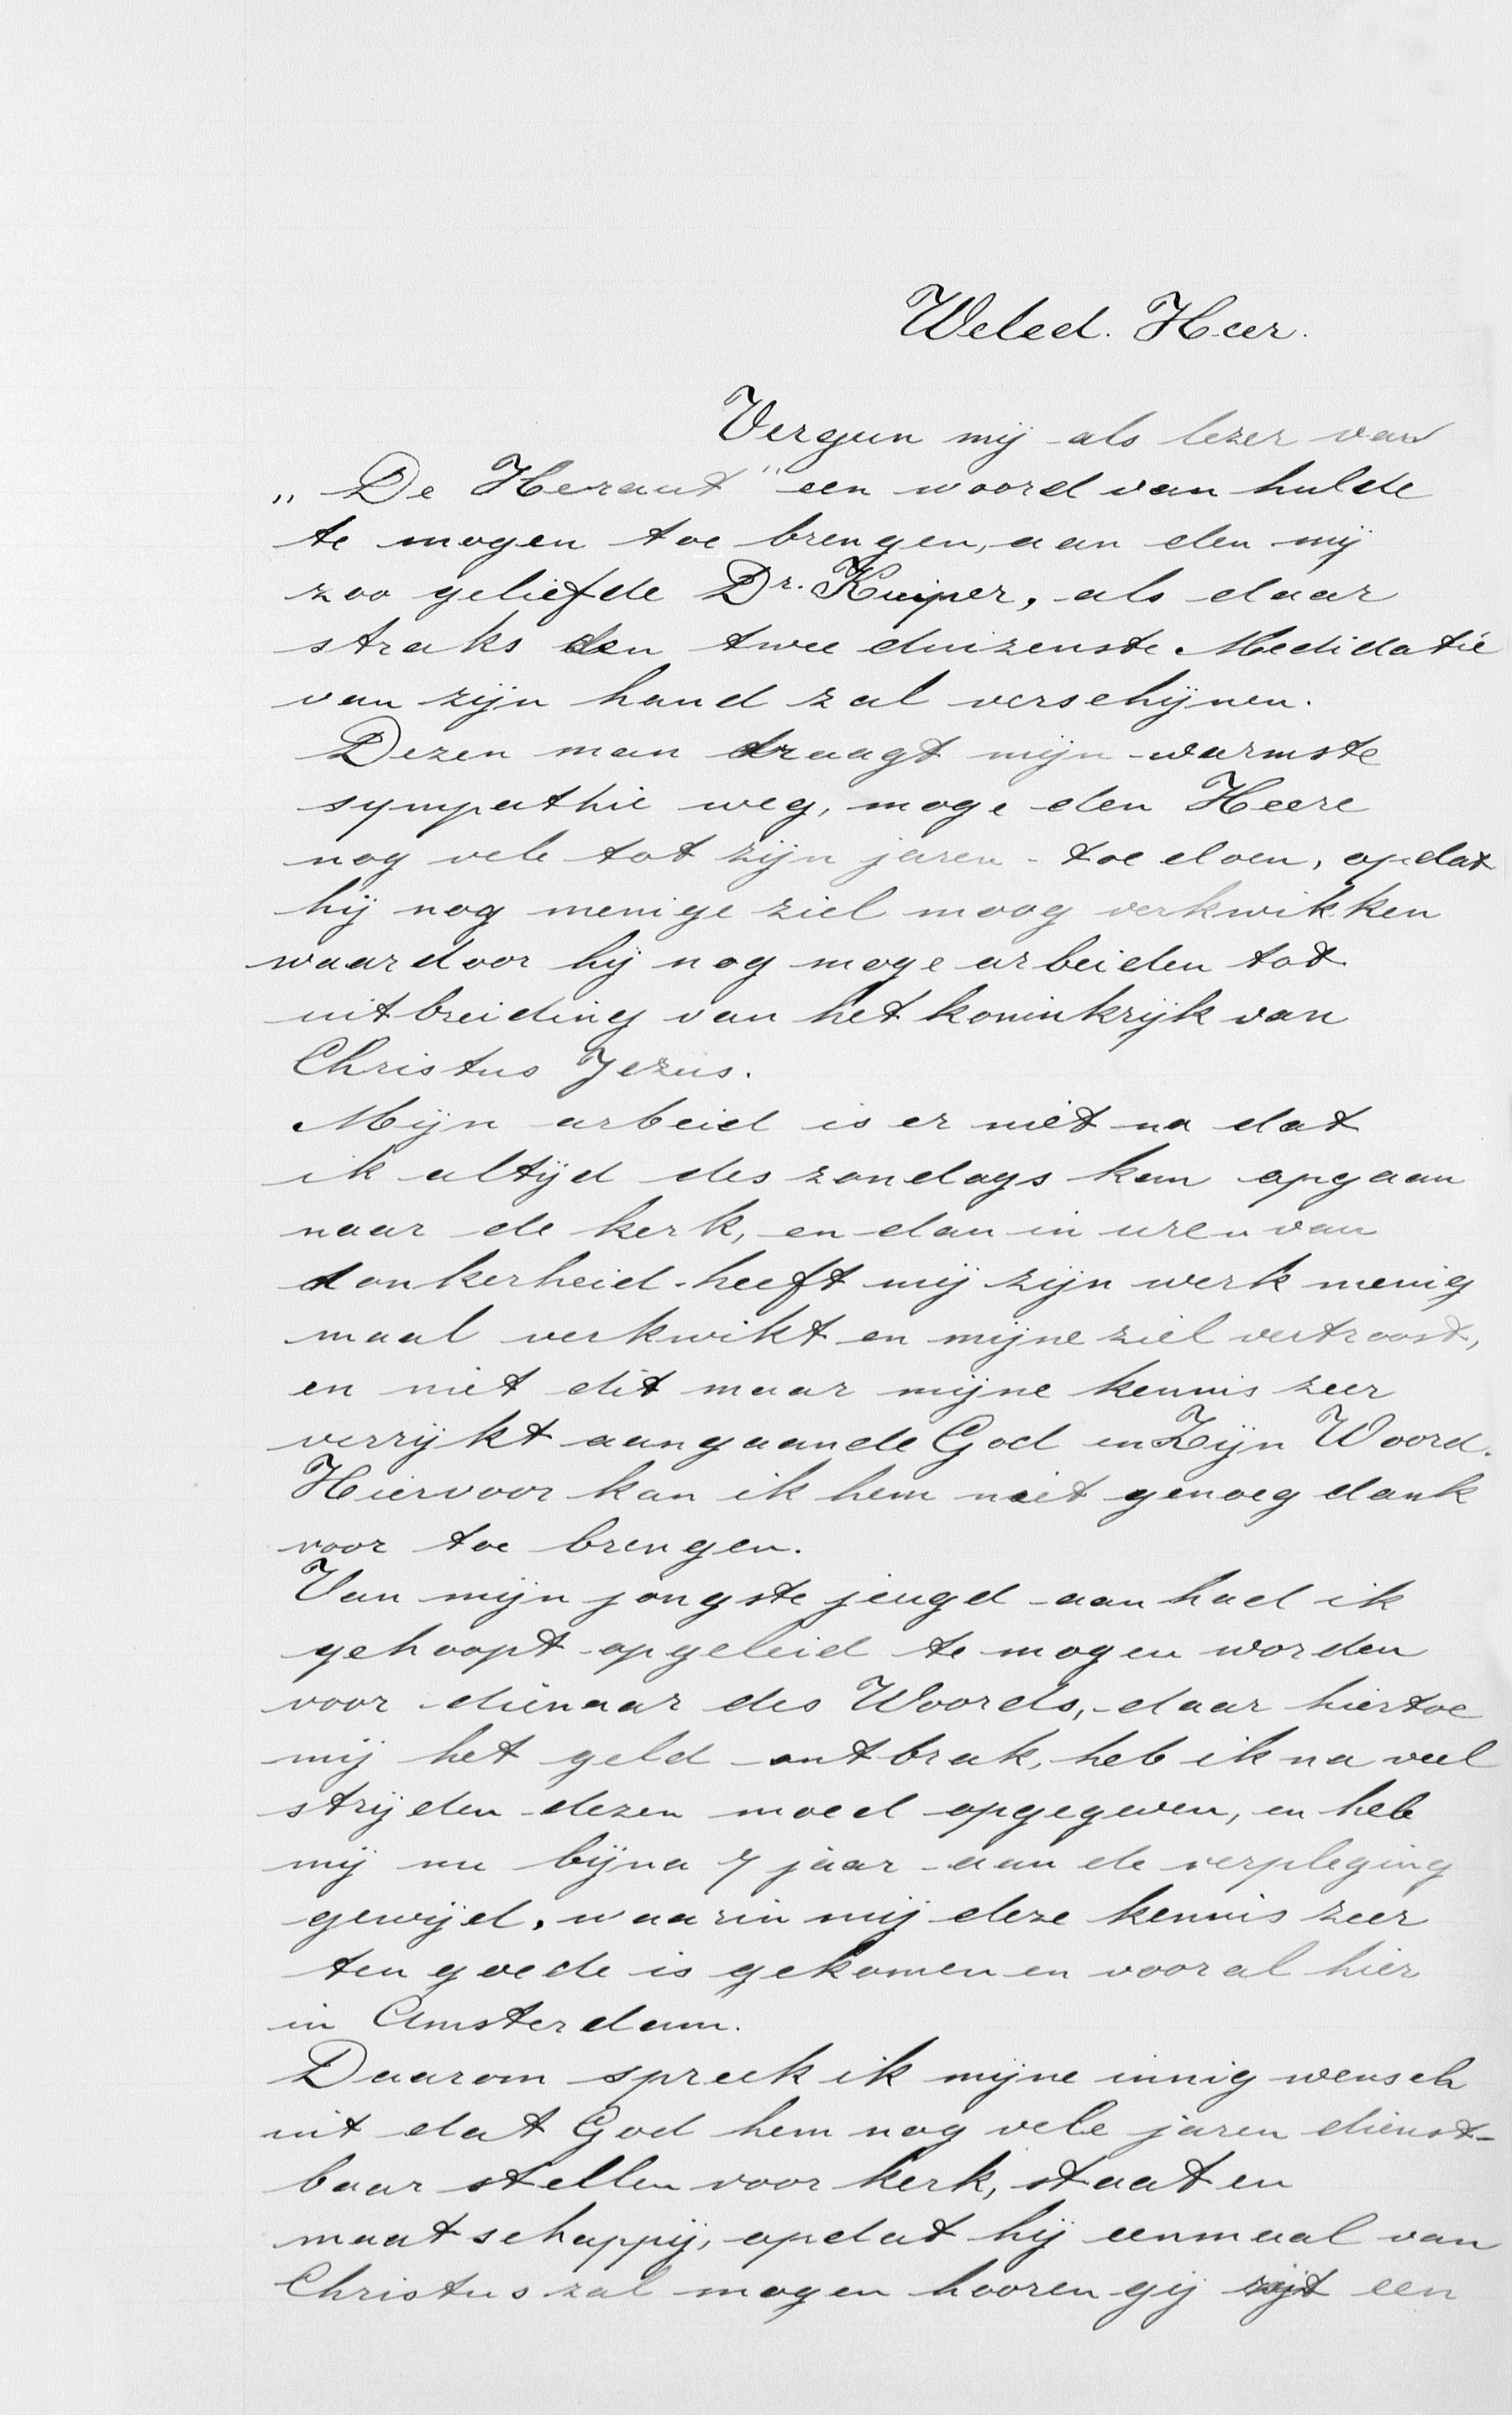 Weled. Heer.
Vergun mij als lezer van
„De Heraut" een woord van hulde
te mogen toe brengen, aan den mij
zoo geliefde Dr. Kuiper, als daar
straks den twee duizenste Medidatie
van zijn hand zal verschijnen.
Dezen man draagt mijn warmste
sympathie weg, moge den Heere
nog vele tot zijn jaren toe doen, opdat
hij nog menige ziel moog verkwikken
waardoor hij nog moge arbeiden tot
uitbreiding van het koninkrijk van
Christus Jezus.
Mijn arbeid is er niet na dat
ik altijd des zondags kan opgaan
naar de kerk, en dan in uren van
donkerheid heeft mij zijn werk menig
maal verkwikt en mijne ziel vertroost,
en niet dit maar mijne kennis zeer
verrijkt aangaande God en Zijn Woord.
Hiervoor kan ik hem niet genoeg dank
voor toe brengen.
Van mijn jongste jeugd aan had ik
gehoopt opgeleid te mogen worden
voor dienaar des Woords, daar hiertoe
mij het geld ontbrak, heb ik na veel
strijden dezen moed opgegeven, en heb
mij nu bijna 7 jaar aan de verpleging
gewijd, waarin mij deze kennis zeer
ten goede is gekomen en vooral hier
in Amsterdam.
Daarom spreek ik mijne innig wensch
uit dat God hem nog vele jaren dienst-
baar stellen voor kerk, staat en
maatschappij, opdat hij eenmaal van
Christus zal mogen hooren gij zijt een